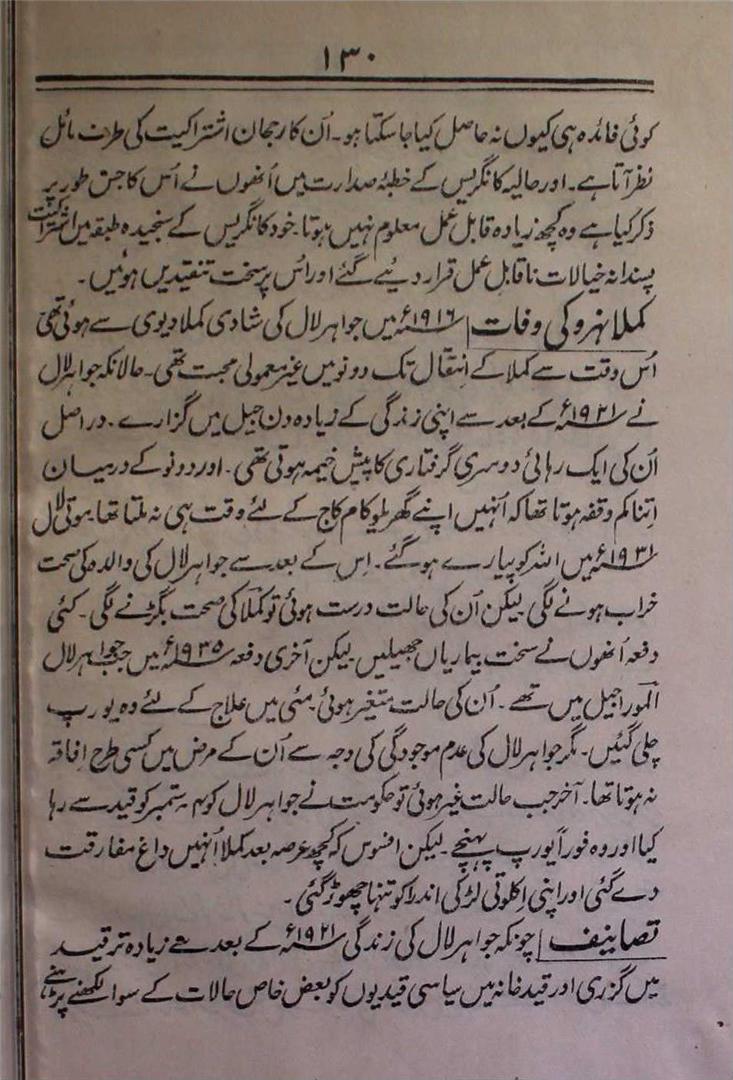 ۱۳۰
کوئی فائدہ ہی کیوں نہ حاصل کیا جاسکتا ہو۔ اُن کا رجحان اشتراکیت کی طرف مائل
نظر آتا ہے۔ اور حالیہ کانگریس کے خطبۂ صدارت میں اُنھوں نے اُس کا جس طور پر
ذکر کیا ہے وہ کچھ زیادہ قابل عمل معلوم نہیں ہوتا۔ خود کانگریس کے سنجیدہ طبقہ میں اشتراکیت
پسندانہ خیالات ناقابلِ عمل قرار دیئے گئے اور اُس پر سخت تنقیدیں ہوئیں۔
کملا نہرو کی وفات | ۱۹۱۶ء میں جواہر لال کی شادی کملا دیوی سے ہوئی تھی
اُس وقت سے کملا کے اِنتقال تک دونو میں غیر معمولی محبت تھی۔ حالانکہ جواہر لال
نے ۱۹۲۱ء کے بعد سے اپنی زندگی کے زیادہ دن جیل میں گزارے۔ دراصل
اُن کی ایک رہائی دوسری گرفتاری کا پیش خیمہ ہوتی تھی۔ اور دونو کے درمیان
اِتنا کم وقفہ ہوتا تھا کہ اُنہیں اپنے گھریلو کام کاج کے لئے وقت ہی نہ ملتا تھا۔ موتی لال
۱۹۳۱ء میں اللہ کو پیارے ہوگئے۔ اِس کے بعد سے جواہر لال کی والدہ کی صحت
خراب ہونے لگی۔ لیکن اُن کی حالت درست ہوئی تو کملا کی صحت بگڑنے لگی۔ کئی
دفعہ اُنھوں نے سخت بیماریاں جھیلیں لیکن آخری دفعہ ۱۹۳۵ء میں جب جواہر لال
المورا جیل میں تھے۔ اُن کی حالت متغیر ہوئی۔ مئی میں علاج کے لئے وہ یورپ
چلی گئیں۔ مگر جواہر لال کی عدم موجودگی کی وجہ سے اُن کے مرض میں کسی طرح اِفاقہ
نہ ہوتا تھا۔ آخر جب حالت غیر ہوئی تو حکومت نے جواہر لال کو ۴ ستمبر کو قید سے رہا
کیا اور وہ فوراً یورپ پہنچے۔ لیکن افسوس کہ کچھ عرصہ بعد کملا اُنہیں داغ مفارقت
دے گئی اور اپنی اِکلوتی لڑکی اندرا کو تنہا چھوڑ گئی۔
تصانیف | چونکہ جواہر لال کی زندگی ۱۹۲۱ء کے بعد سے زیادہ تر قید
میں گزری اور قید خانہ میں سیاسی قیدیوں کو بعض خاص حالات کے سوا لکھنے پڑھنے